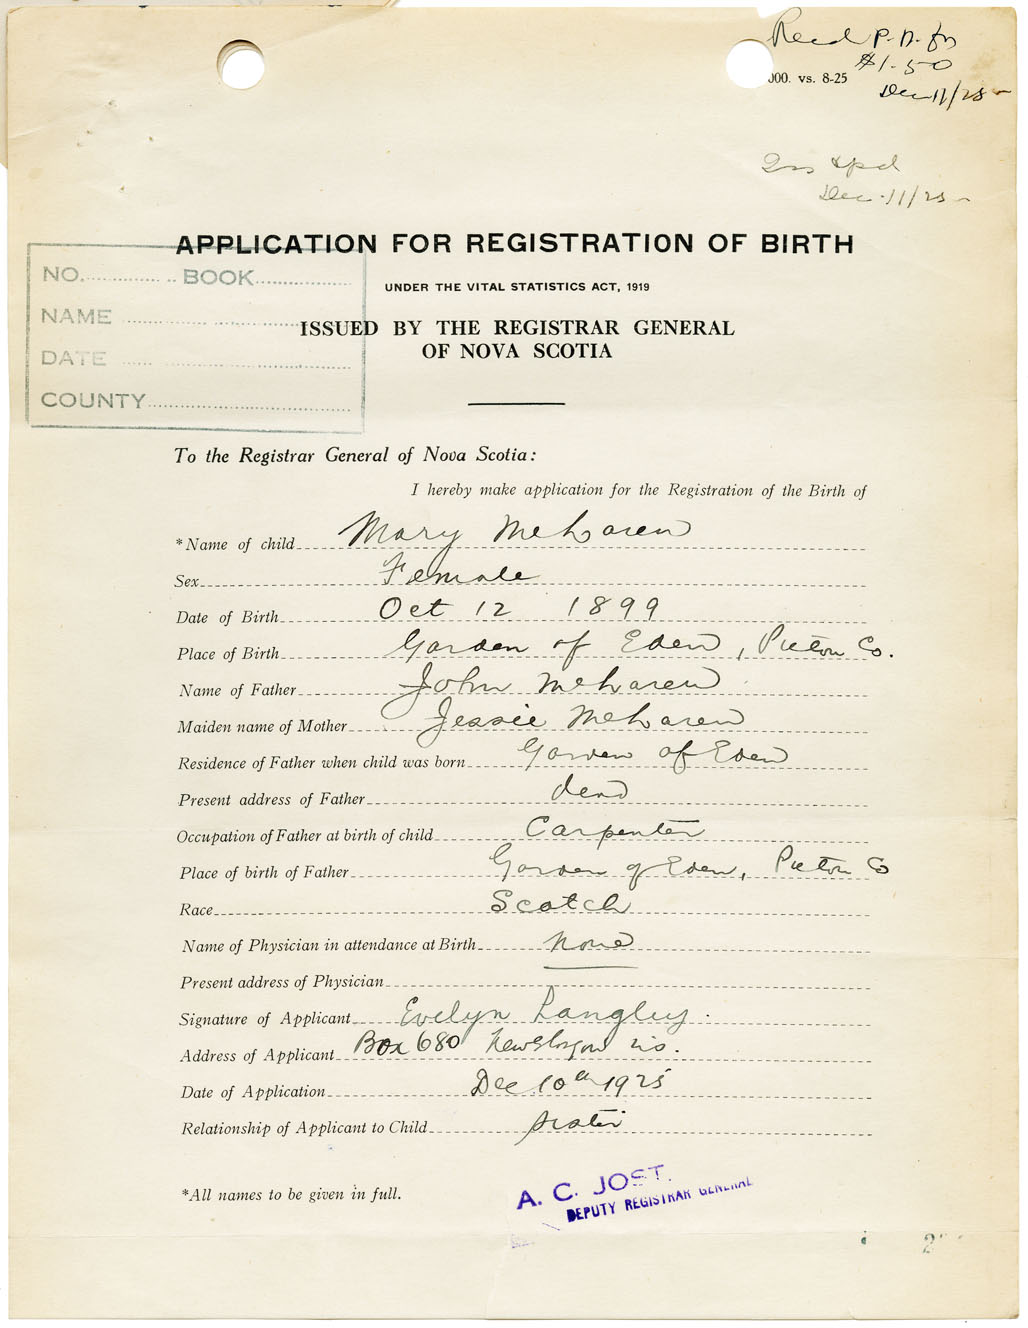 Recd P.N. for
$1.50
000. vs. 8-25
Dec 11/25
Dec. 11/25
APPLICATION FOR REGISTRATION OF BIRTH
NO. BOOK
UNDER THE VITAL STATISTICS ACT, 1919
NAME
ISSUED BY THE REGISTRAR GENERAL
OF NOVA SCOTIA
DATE
COUNTY
To the Registrar General of Nova Scotia:
I hereby make application for the Registration of the Birth of
*Name of child Mary McLaren
Sex Female
Date of Birth Oct 12 1899
Place of Birth Garden of Eden, Pictou Co.
Name of Father John McLaren
Maiden name of Mother Jessie McLaren
Residence of Father when child was born Garden of Eden
Present address of Father dead
Occupation of Father at birth of child Carpenter
Place of birth of Father Garden of Eden, Pictou Co
Race Scotch
Name of Physician in attendance at Birth None
Present address of Physician
Signature of Applicant Evelyn Langley.
Address of Applicant Box 680 New Glasgow N.S.
Date of Application Dec 10th 1925
Relationship of Applicant to Child sister
*All names to be given in full.
A. C. JOST.
DEPUTY REGISTRAR GENERAL